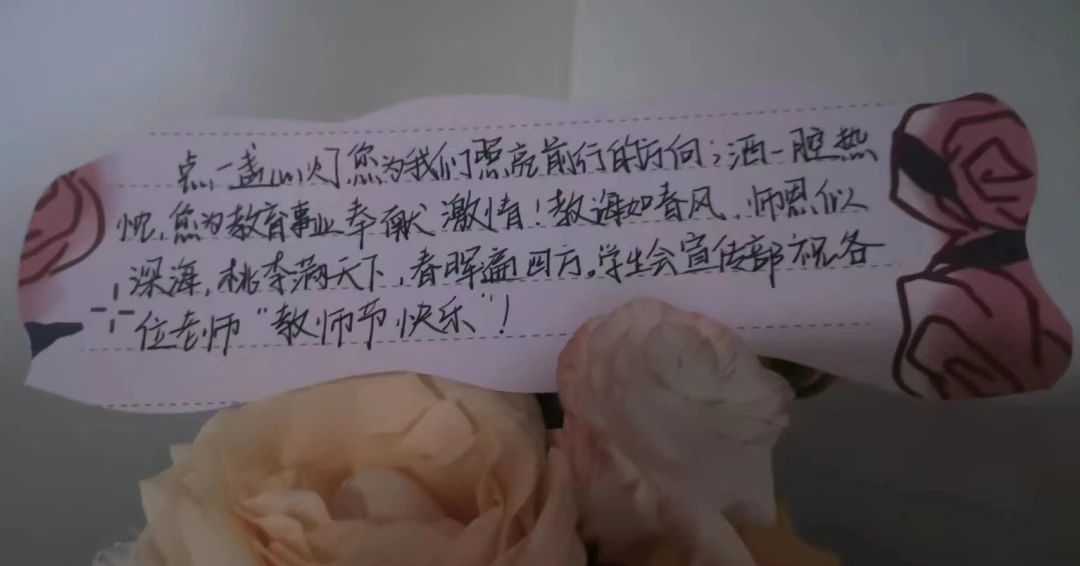 点一盏心灯,您为我们照亮前行的方向;洒一腔热
忱,您为教育事业奉献激情!教诲如春风,师恩似
深海,桃李满天下,春晖遍四方。学生会宣传部祝各
位老师“教师节快乐”!